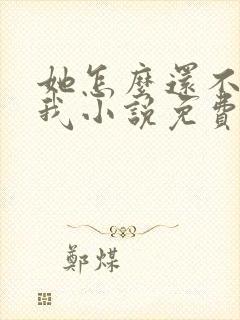 她怎麼還不
我小說免費
鄭煤